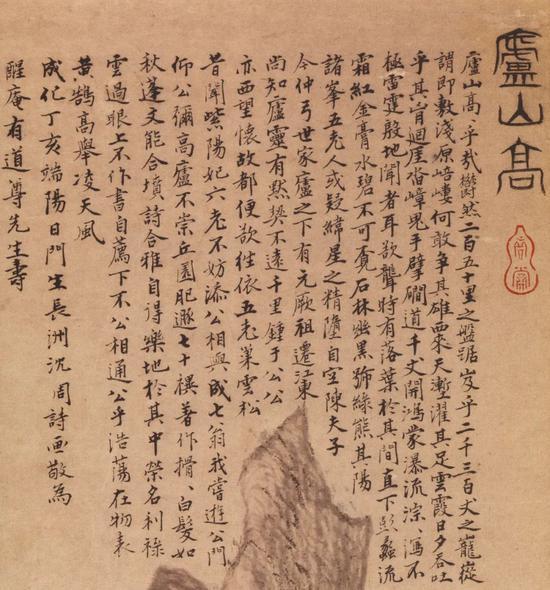 廬山高
廬山高〻乎哉鬱然二百五十里之盤踞岌乎二千三百丈之巃嵷
謂即敷淺原培嶁何敢爭其雄西來天塹濯其足雲霞日夕吞吐
乎其胷迴崖沓嶂鬼手擘磵道千丈開鴻蒙瀑流淙〻瀉不
極雷霆殷地聞者耳欲聾時有落葉於其間直下彭蠡流
霜紅金膏水碧不可覓石林幽黑號綠熊其陽
諸峯五老人或疑緯星之精隳自空陳夫子
今仲弓世家廬之下有元厥祖遷江東
尚知廬靈有默契不遠千里鍾于公〻
亦西望懷故都便欲往依五老巢雲松
昔聞紫陽妃六老不妨添公相與成七翁我嘗遊公門
仰公彌高廬不崇丘園肥遯七十禩著作揹〻白髮如
秋蓬文能合墳詩合雅自得樂地於其中榮名利祿
雲過眼上不作書自薦下不公相通公乎浩蕩在物表
黄鵠高舉凌天風
成化丁亥端陽日門生長洲沈周詩画敬爲
醒庵有道尊先生壽